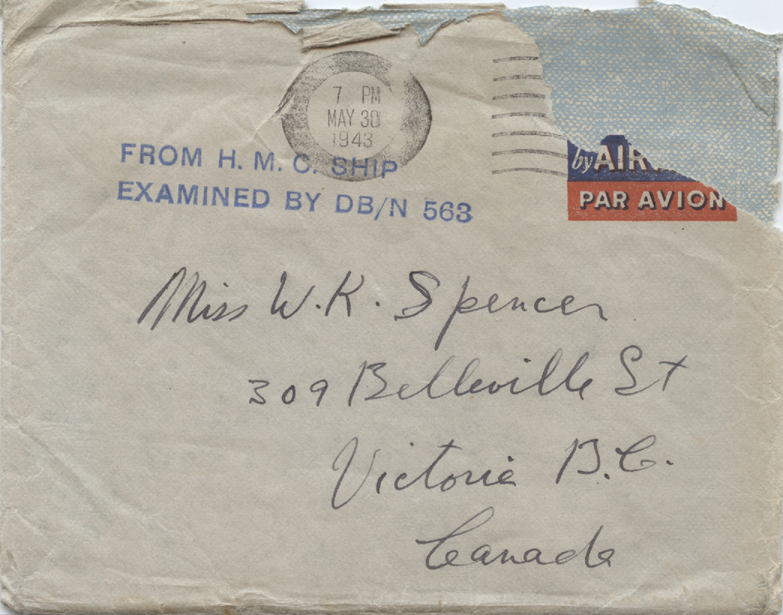 7 PM
MAY 30
1943
FROM H. M. C. SHIP
EXAMINED BY DB/N 563
by AIR
PAR AVION
Miss W. K. Spencer
309 Belleville St
Victoria B.C.
Canada